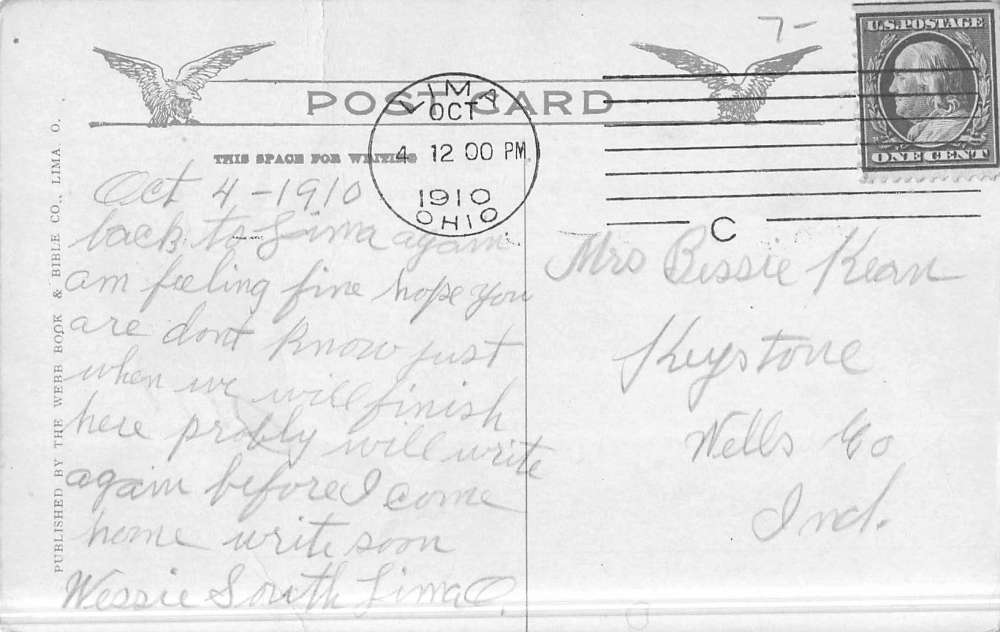 7-
U.S. POSTAGE
ONE CENT
POST CARD
LIMA
OCT
4 12 00 PM
1910
OHIO
C
THIS SPACE FOR WRITING
Oct 4 - 1910
back to Lima again
am feeling fine hope you
are dont know just
when we will finish
here probly will write
again before I come
home write soon
Wessie South Lima O.
Mrs Bessie Kean
Keystone
Wells Co
Ind.
PUBLISHED BY THE WEBB BOOK & BIBLE CO., LIMA O.